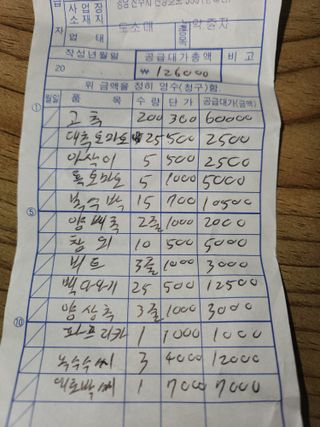 사업장
소재지
업 태 도소매 종목 농약종자
작성년월일 공급대가총액 비고
20 ₩ 126000
위 금액을 정히 영수(청구)함
월일 품 목 수 량 단 가 공급대가(금액)
① 고추 200 300 60000
대추토마토 25 500 2500
아삭이 5 500 2500
흑토마토 5 1000 5000
복수박 15 700 10500
⑤ 양배추 2줄 1000 2000
참외 10 500 5000
비트 3줄 1000 3000
백다다기 25 500 12500
양상추 3줄 1000 3000
⑩ 파프리카 1 1000 1000
옥수수씨 3 4000 12000
애호박씨 1 7000 7000